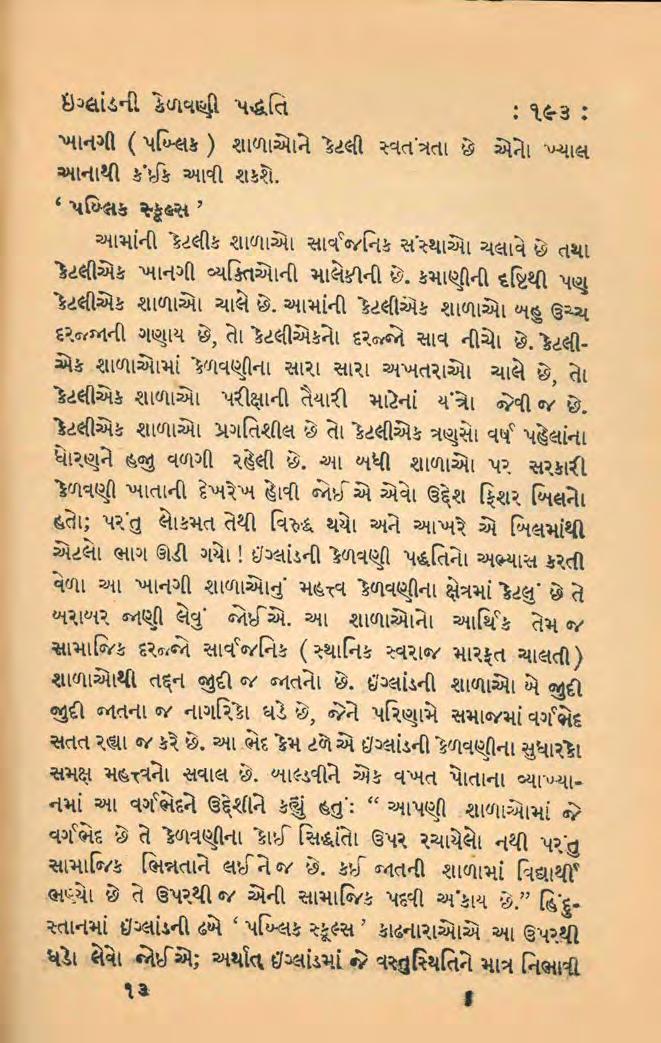 ઇંગ્લાંડની કેળવણી પદ્ધતિ : ૧૯૩ :
ખાનગી ( પબ્લિક ) શાળાઓને કેટલી સ્વતંત્રતા છે એનો ખ્યાલ
આનાથી કંઈક આવી શકશે.
‘ પબ્લિક સ્કૂલ્સ ’
આમાંની કેટલીક શાળાઓ સાર્વજનિક સંસ્થાઓ ચલાવે છે તથા
કેટલીએક ખાનગી વ્યક્તિઓની માલેકીની છે. કમાણીની દૃષ્ટિથી પણ
કેટલીએક શાળાઓ ચાલે છે. આમાંની કેટલીએક શાળાઓ બહુ ઉચ્ચ
દરજ્જાની ગણાય છે, તો કેટલીએકનો દરજ્જો સાવ નીચો છે. કેટલી-
એક શાળાઓમાં કેળવણીના સારા સારા અખતરાઓ ચાલે છે, તો
કેટલીએક શાળાઓ પરીક્ષાની તૈયારી માટેનાં યંત્રો જેવી જ છે.
કેટલીએક શાળાઓ પ્રગતિશીલ છે તો કેટલીએક ત્રણસો વર્ષ પહેલાંના
ધોરણને હજી વળગી રહેલી છે. આ બધી શાળાઓ પર સરકારી
કેળવણી ખાતાની દેખરેખ હોવી જોઈએ એવો ઉદ્દેશ ફિશર બિલનો
હતો; પરંતુ લોકમત તેથી વિરુદ્ધ થયો અને આખરે એ બિલમાંથી
એટલો ભાગ ઊડી ગયો ! ઇંગ્લાંડની કેળવણી પદ્ધતિનો અભ્યાસ કરતી
વેળા આ ખાનગી શાળાઓનું મહત્ત્વ કેળવણીના ક્ષેત્રમાં કેટલું છે તે
બરાબર જાણી લેવું જોઈએ. આ શાળાઓનો આર્થિક તેમ જ
સામાજિક દરજ્જો સાર્વજનિક ( સ્થાનિક સ્વરાજ મારફત ચાલતી )
શાળાઓથી તદ્દન જુદી જ જાતનો છે. ઇંગ્લાંડની શાળાઓ બે જુદી
જુદી જાતના જ નાગરિકો ઘડે છે, જેને પરિણામે સમાજમાં વર્ગભેદ
સતત રહ્યા જ કરે છે. આ ભેદ કેમ ટળે એ ઇંગ્લાંડની કેળવણીના સુધારકો
સમક્ષ મહત્ત્વનો સવાલ છે. બાલ્ડવીને એક વખત પોતાના વ્યાખ્યા-
નમાં આ વર્ગભેદને ઉદ્દેશીને કહ્યું હતું: “ આપણી શાળાઓમાં જે
વર્ગભેદ છે તે કેળવણીના કોઈ સિદ્ધાંતો ઉપર રચાયેલો નથી પરંતુ
સામાજિક ભિન્નતાને લઈને જ છે. કઈ જાતની શાળામાં વિદ્યાર્થી
ભણ્યો છે તે ઉપરથી જ એની સામાજિક પદવી અંકાય છે.” હિંદુ-
સ્તાનમાં ઇંગ્લાંડની ઢબે ‘ પબ્લિક સ્કૂલ્સ ’ કાઢનારાઓએ આ ઉપરથી
ધડો લેવો જોઈએ; અર્થાત્ ઇંગ્લાંડમાં જે વસ્તુસ્થિતિને માત્ર નિભાવી
૧૩